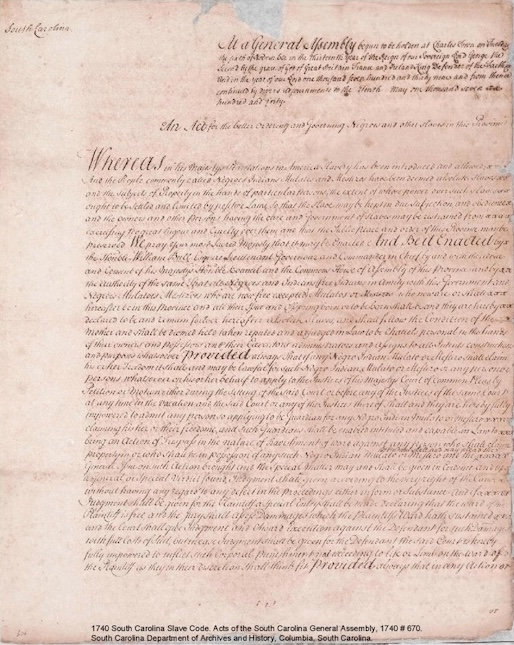 South Carolina.
At a General Assembly begun to be holden at Charles Town on
the in the thirteenth year of the Reign of our Sovereign Lord George the
Second by the grace of God of Great Britain France and Ireland King Defender of the Faith
And in the year of our Lord one thousand seven hundred and thirty nine and from thence
continued by divers adjournments to the tenth May one thousand seven
hundred and forty
An Act for the better Ordering and Governing Negroes and other Slaves in this Province
Whereas in his Majesty's Plantations in America Slavery has been introduced and allowed
And the People commonly called Negroes Indians Mulatos and Mestizos have been deemed absolute Slaves
and the Subjects of Property in the hands of particular Persons the extent of whose power over such Slaves
ought to be settled and limited by positive Laws So that the Slave may be kept in due Subjection and obedience
and the owners and other Persons having the care and Government of Slaves may be restrained from
exercising too great Rigour and Cruelty over them and that the Public Peace and order of this Province may be
preserved We pray Your most Sacred Majesty that it may be Enacted And be it Enacted by
the Honble William Bull Esquire Lieutenant Governour and Commander in Chief by and with the advice
and Consent of his Majesty's Honble Council and the Commons House of Assembly of this Province and by
the Authority of the same That all Negroes and Indians free Indians in Amity with this Government and
Negroes Mulatos Mestizos who are now free excepted Mulatos or Mestizos who now are or shall
hereafter be in this Province and all their Issue and offspring born or to be born shall be and they are hereby
declared to be and remain for ever hereafter absolute Slaves and shall follow the Condition of the
Mother and shall be deemed held taken reputed and adjudged in Law to be Chattels personal in the hands
of their owners and possessors and their Executors administrators and assigns to all Intents constructions
and purposes whatsoever Provided always that if any Negro Indian Mulato or Mestizo shall claim
his or her Freedom it shall and may be lawful for such Negro Indian Mulato or Mestizo or any person or
persons whatsoever on his or her behalf to apply to the Justices of his Majesty's Court of Common Pleas by
Petition or Motion either during the sitting of the said Court or before any of the Justices of the same Court
at any time in the Vacation and the said Court or any of the Justices thereof shall and they are hereby fully
impowered to admit any person so applying to be Guardian for any Negro Indian Mulato or Mestizo
claiming his her or their Freedom and such Guardian shall be enabled intitled and capable in Law to
bring an Action of Trespass in the nature of Ravishment of ward against any person who shall claim
property in or who shall be in possession of any such Negro Indian Mulato or Mestizo
General Issue on such Action brought and the Special Matter may and shall be given in Evidence and
a general or Special Verdict found Judgment shall be given according to the very right of the Cause
without having any regard to any defect in the Proceedings either in form or Substance And
Judgment shall be given for the Plaintiff a Special Entry shall be made declaring that the ward of the
Plaintiff is free and the Jury shall assess Damages which the Plaintiff's Ward hath sustained
and the Court shall give Judgment and award Execution against the Defendant for such Damages
with full Costs of Suit but in case Judgment shall be given for the Defendant the said Court is hereby
fully impowered to inflict such Corporal punishment not extending to Life or Limb on the ward of
the Plaintiff as they in their discretion shall think fit Provided always that in any Action or
1740 South Carolina Slave Code. Acts of the South Carolina General Assembly, 1740 # 670.
South Carolina Department of Archives and History, Columbia, South Carolina.